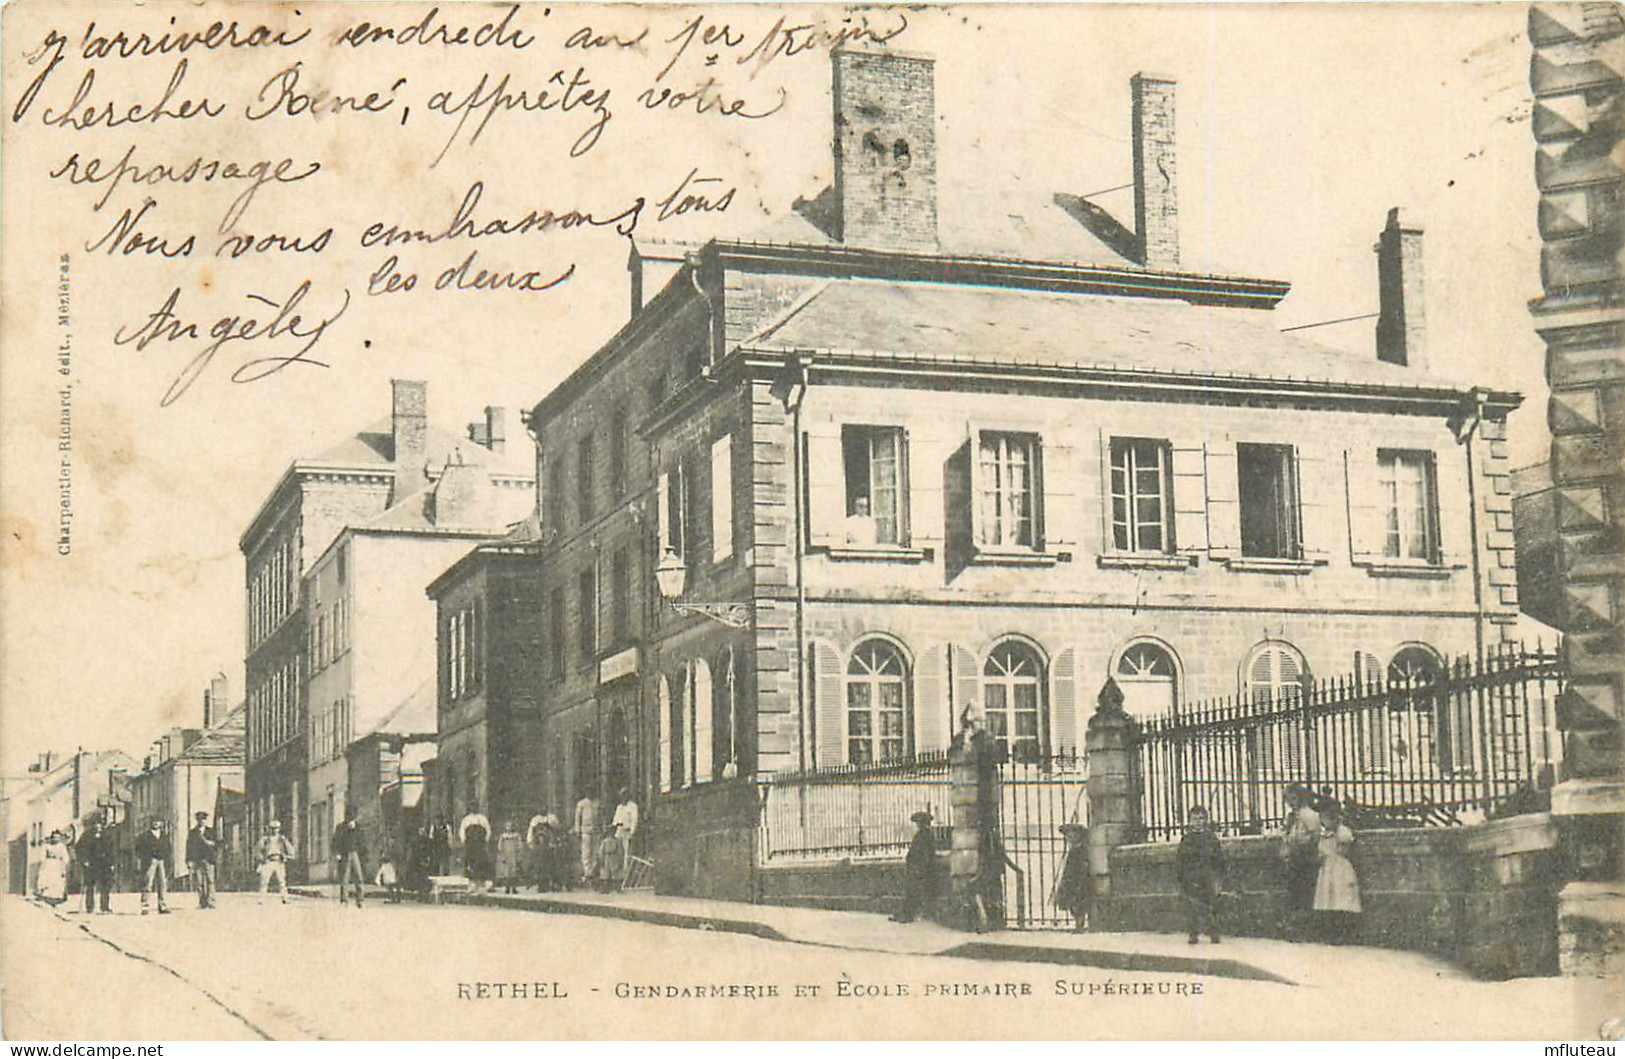 J'arriverai vendredi au 1er train
chercher René, apprêtez votre
repassage
Nous vous embrassons tous
les deux
Angèle
Charpentier-Richard, édit., Mézières
RETHEL - GENDARMERIE ET ÈCOLE PRIMAIRE SUPÉRIEURE
mfluteau